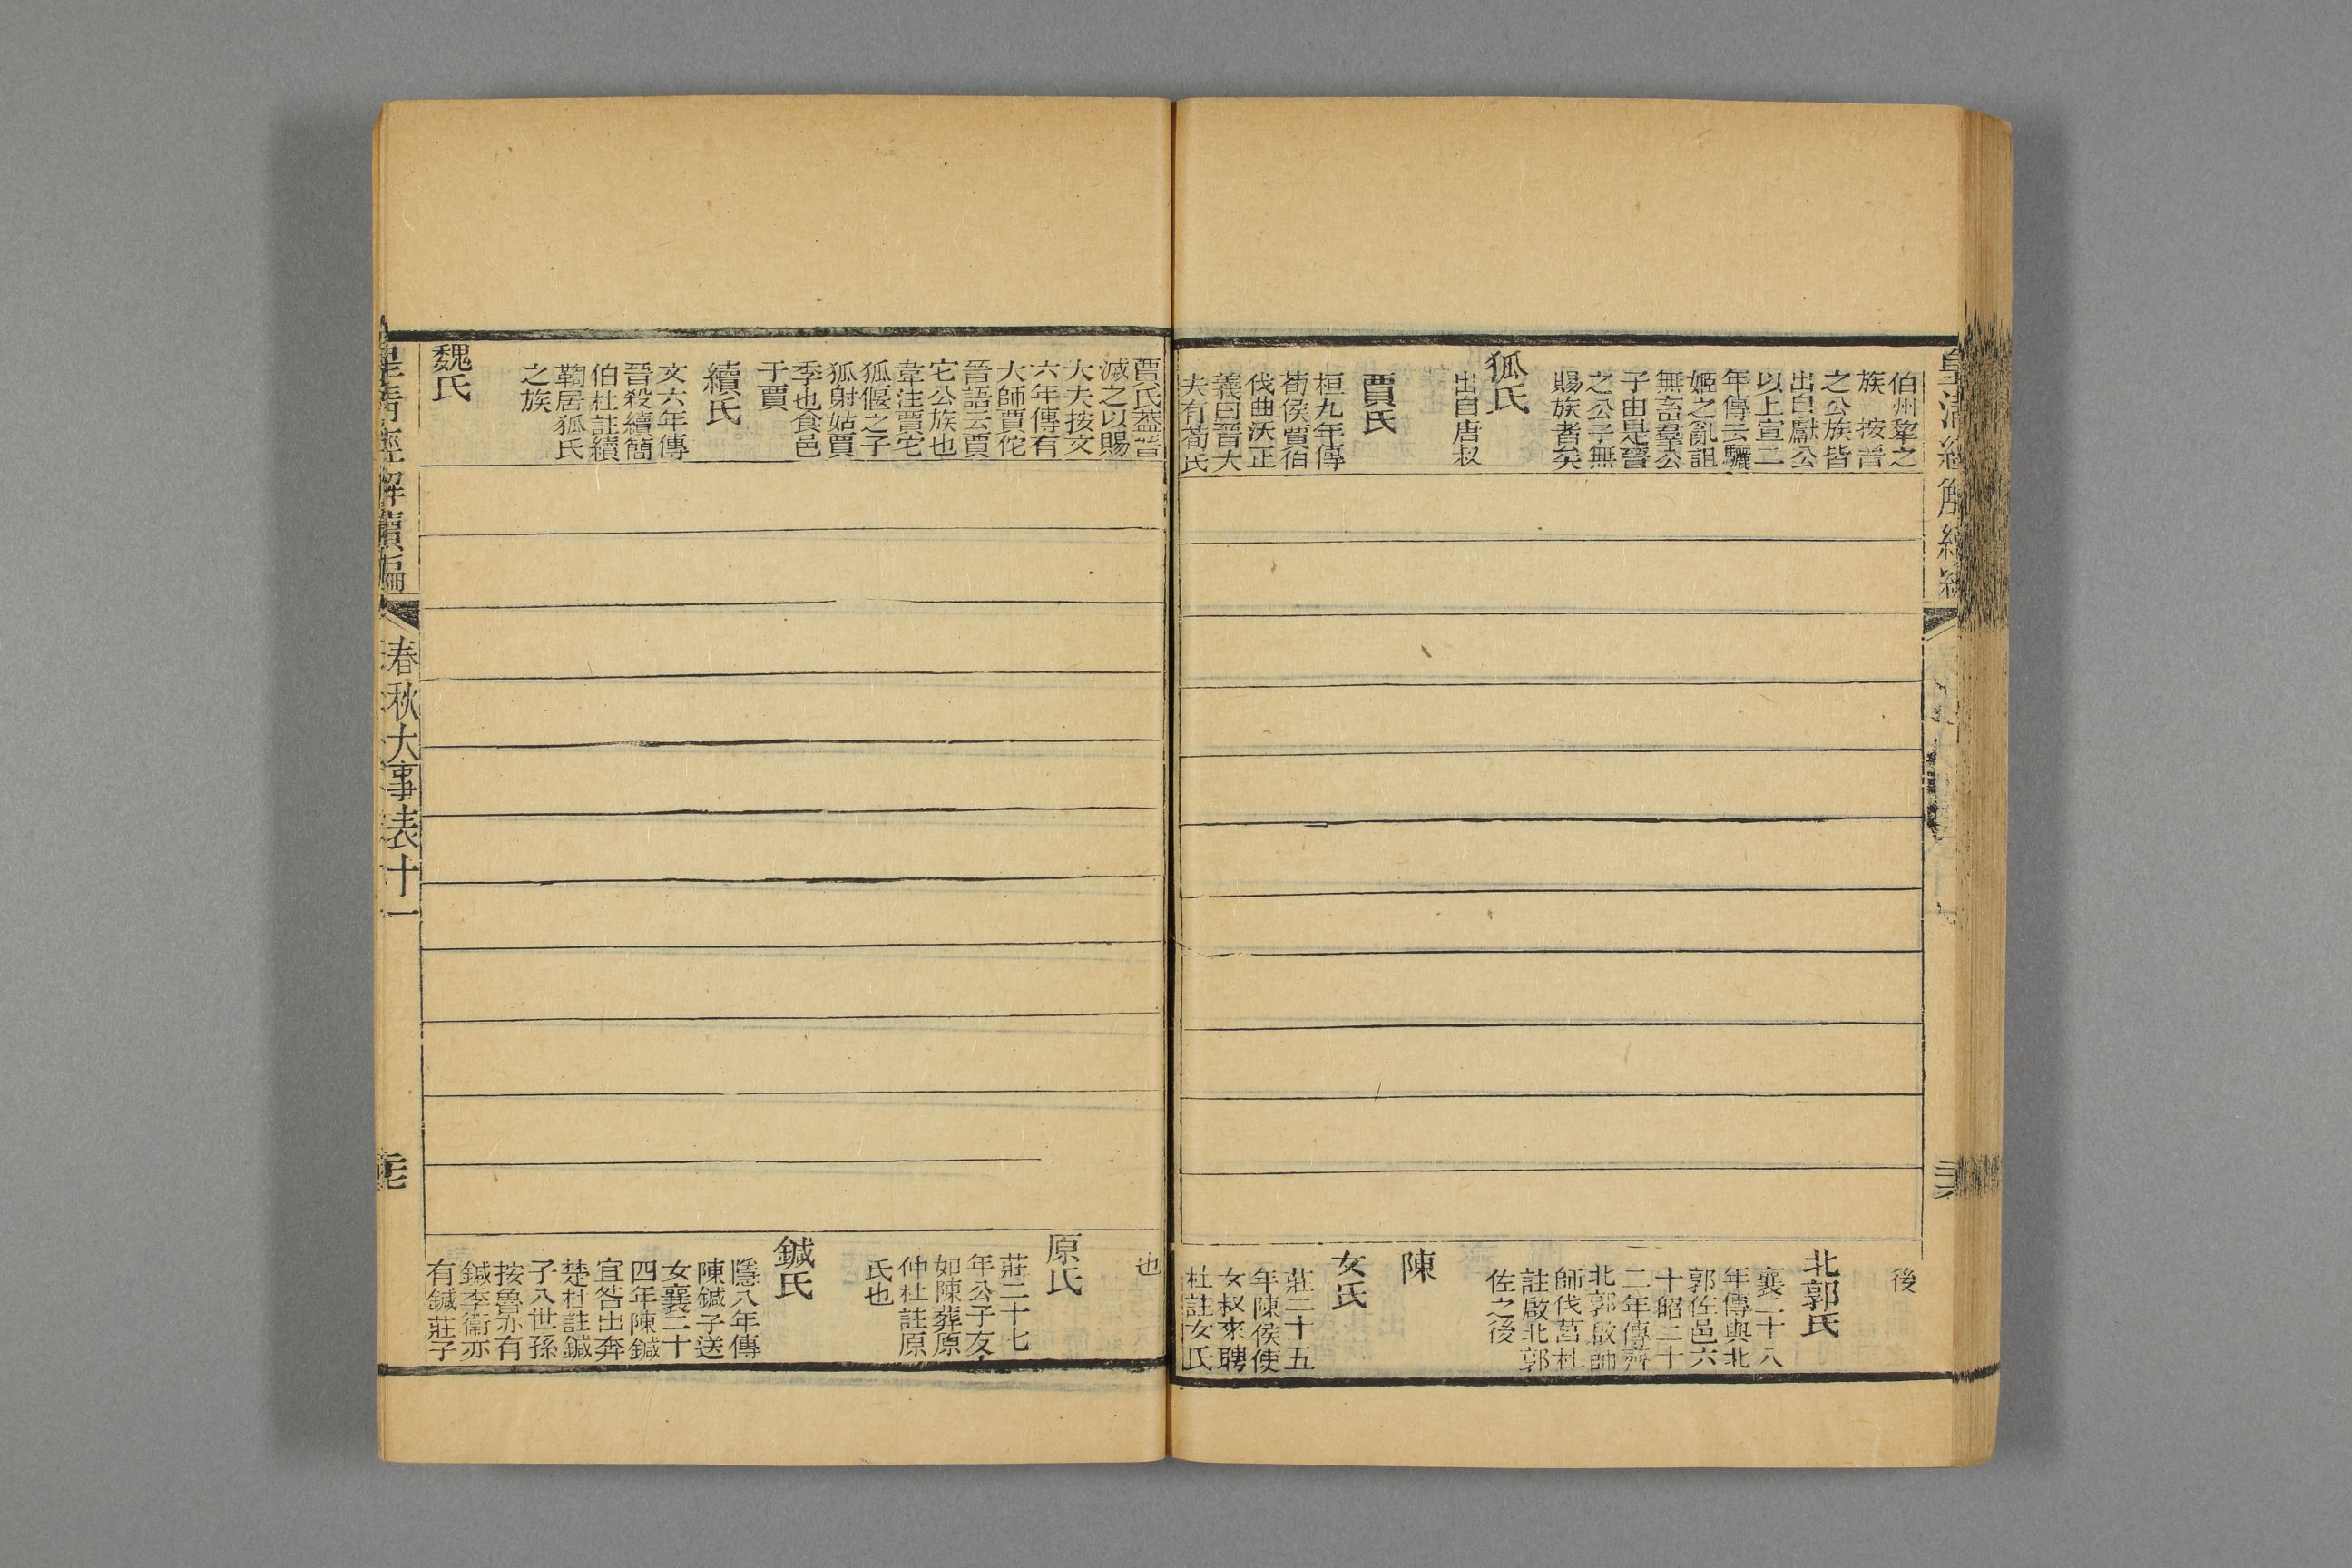 伯州犂之
族　按晉
之公族皆
出自獻公
以上宣二
年傳云驪
姬之亂詛
無畜羣公
子由是晉
之公子無
賜族者矣
狐氏
出自唐叔
賈氏
桓九年傳
荀侯賈伯
伐曲沃正
義曰晉大
夫有荀氏
後
北郭氏
襄二十八
年傳與北
郭佐邑六
十昭二十
二年傳齊
北郭啟帥
師伐莒杜
註啟北郭
佐之後
陳
女氏
莊二十五
年陳侯使
女叔來聘
杜註女氏
賈氏蓋晉
滅之以賜
大夫按文
六年傳有
大師賈佗
晉語云賈
它公族也
韋注賈它
狐偃之子
狐射姑賈
季也食邑
于賈
續氏
文六年傳
晉殺續簡
伯杜註續
鞫居狐氏
之族
魏氏
也
原氏
莊二十七
年公子友
如陳葬原
仲杜註原
氏也
鍼氏
隱八年傳
陳鍼子送
女襄二十
四年陳鍼
宜咎出奔
楚杜註鍼
子八世孫
按魯亦有
鍼季衞亦
有鍼莊子
皇清經解續編
春秋大事表十一